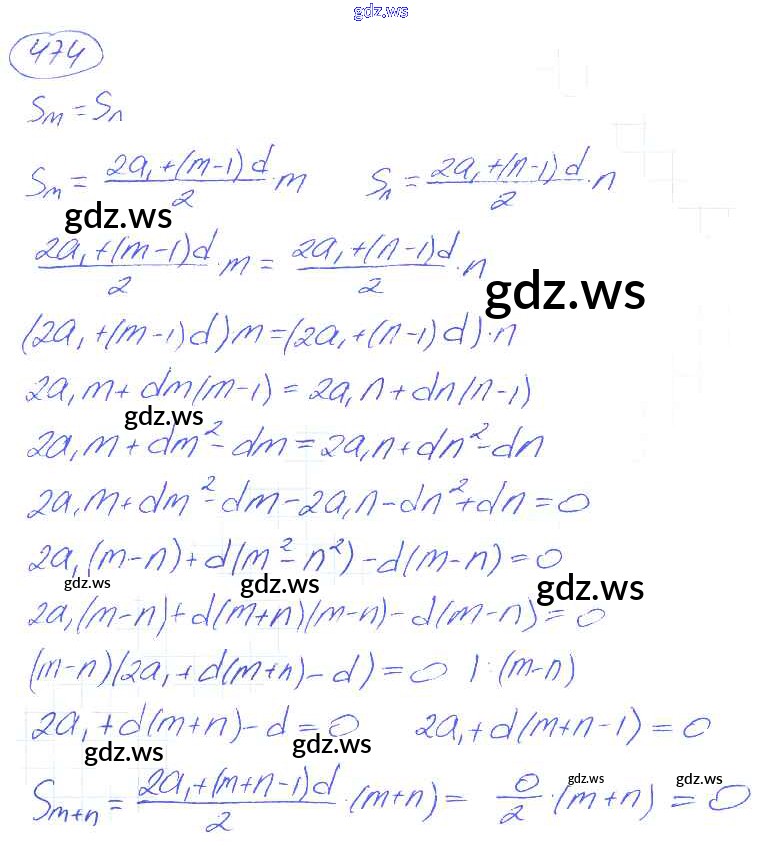 gdz.ws
474
Sₘ = Sₙ
Sₘ = (2a₁+(m-1)d)/2 · m    Sₙ = (2a₁+(n-1)d)/2 · n
gdz.ws
(2a₁+(m-1)d)/2 · m = (2a₁+(n-1)d)/2 · n
gdz.ws
(2a₁+(m-1)d)m=(2a₁+(n-1)d)·n
2a₁m+dm(m-1)=2a₁n+dn(n-1)
gdz.ws
2a₁m+dm²-dm=2a₁n+dn²-dn
2a₁m+dm²-dm-2a₁n-dn²+dn=0
2a₁(m-n)+d(m²-n²)-d(m-n)=0
gdz.ws gdz.ws gdz.ws
2a₁(m-n)+d(m+n)(m-n)-d(m-n)=0
(m-n)(2a₁+d(m+n)-d)=0 |:(m-n)
2a₁+d(m+n)-d=0    2a₁+d(m+n-1)=0
gdz.ws gdz.ws
Sₘ₊ₙ = (2a₁+(m+n-1)d)/2 · (m+n) = 0/2 · (m+n) = 0
gdz.ws gdz.ws